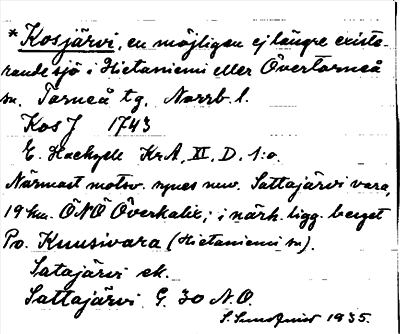 * Kosjärvi, en möjligen ej längre existe-
rande sjö i Hietaniemi eller Övertorneå
sn. Torneå tg. Norrb. l.
Kos J 1743
E. Hackzell KrA, XI, D. 1:o.
Närmast motsv. synes nuv. Sattajärvi vara,
19 km. ÖNÖ Överkalix; i närh. ligg. berget
Po. Kuusivara (Hietaniemi sn).
Satajärvi ek.
Sattajärvi G. 30 N.O.
S. Sundqvist 1935.